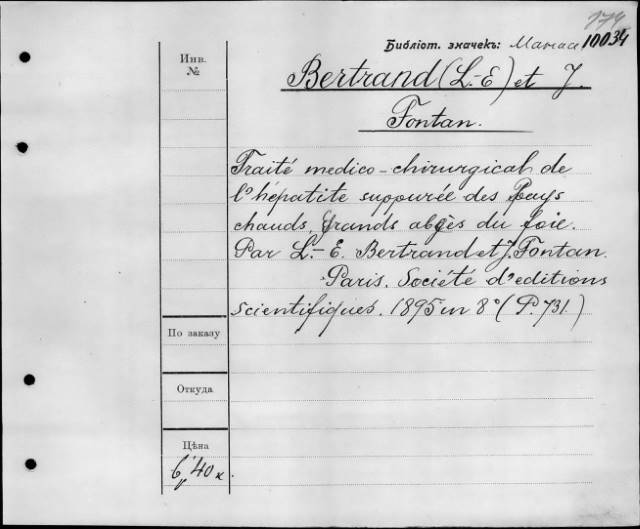 174
Библіот. значекъ: 10034
Инв.
№
Bertrand (L.-E) et J.
Fontan.
Traité medico-chirurgical de
l'hépatite suppurée des Pays
chauds, grands abçès du foie.
Par L.-E. Bertrand et J. Fontan.
Paris. Société d'editions
scientifiques. 1895 in 8° (P. 731.)
По заказу
Откуда
Цѣна
6 р 40 к.